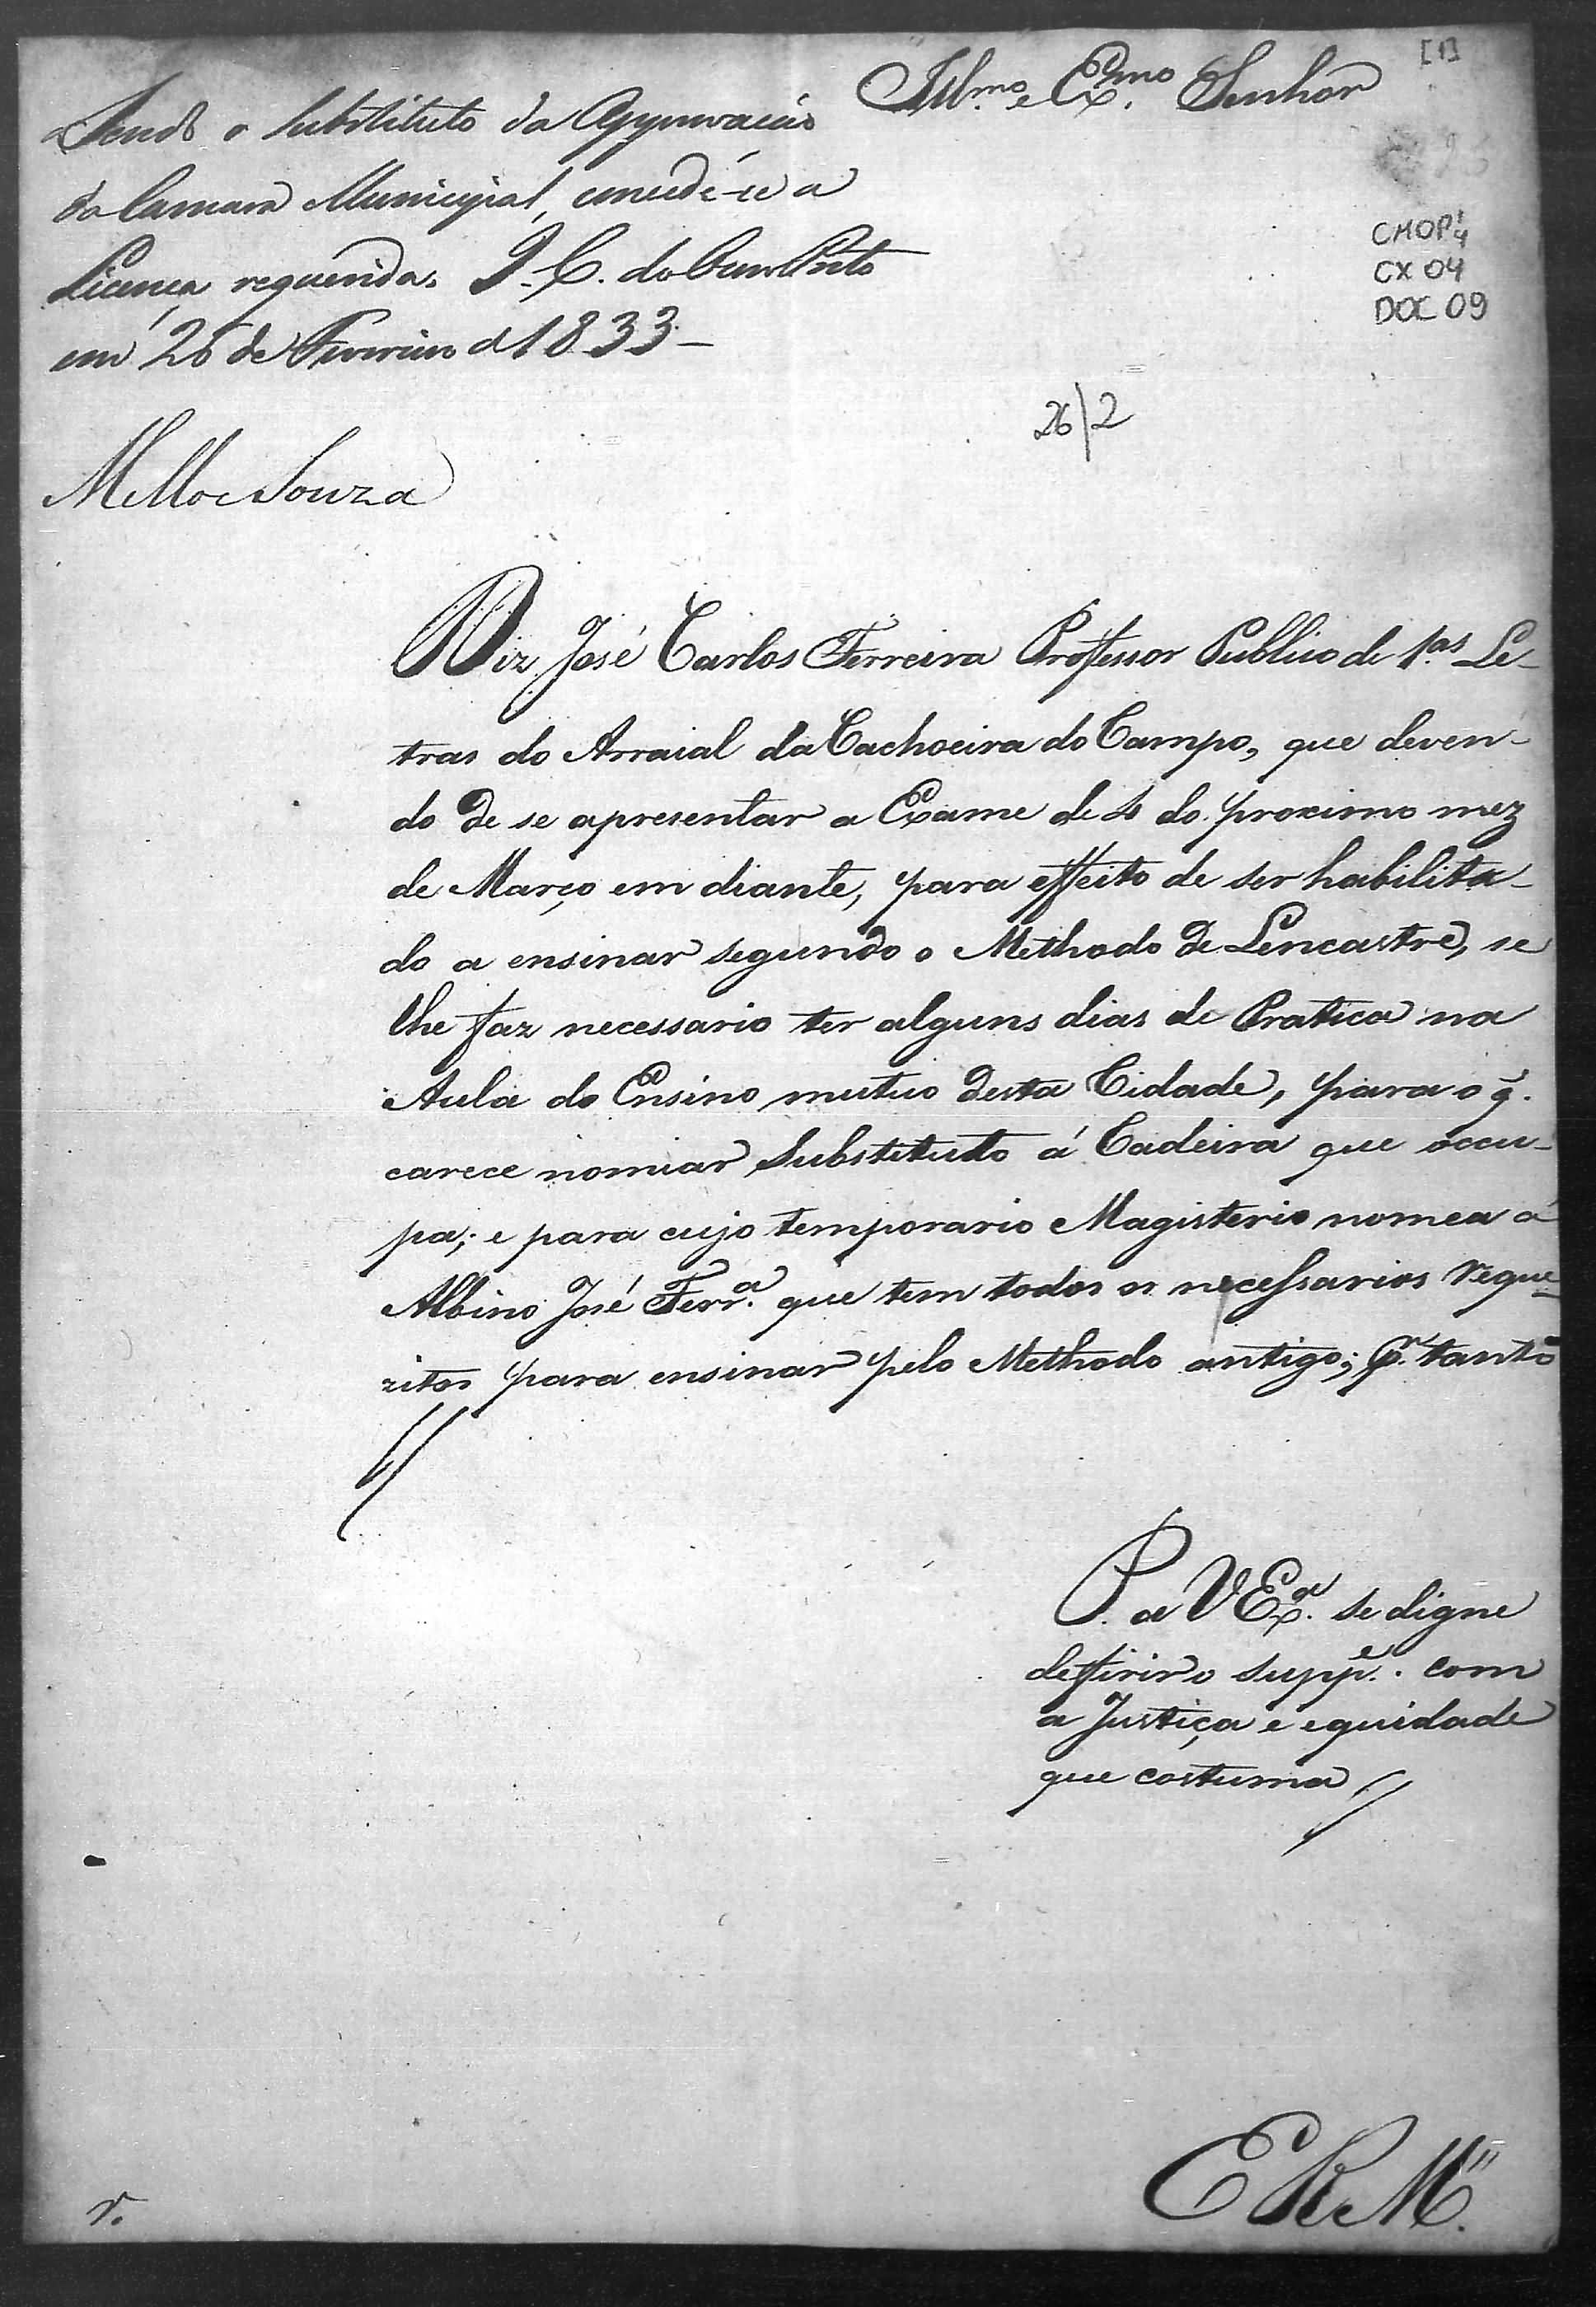 [1]
Illmo. e Exmo. Senhor
Sendo o Substituto da Approvação
da Camara Municipal, concede-se a
Licença requerida. I. C. do Ouro Preto
em 26 de Fevereiro d 1833 -
Mello e Souza
CMOP
CX 04
DOC 09
26/2
Diz José Carlos Ferreira Professor Publico de 1.as Le-
tras do Arraial da Cachoeira do Campo, que deven-
do de se apresentar a Exame de 4 do proximo mez
de Março em diante, para effeito de ser habilita-
do a ensinar segundo o Methodo de Lencastre, se
lhe faz necessario ter alguns dias de Pratica na
Aula do Ensino mutuo desta Cidade, para o q̃.
carece nomiar Substituto á Cadeira que occu-
pa; e para cujo temporario Magisterio nomea a
Albino José Ferr.a que tem todos os necessarios reque-
zitos para ensinar pelo Methodo antigo; P.r tanto
P. a V Ex.a se digne
defferir o supp.e com
a Justiça e equidade
que costuma
E R M.